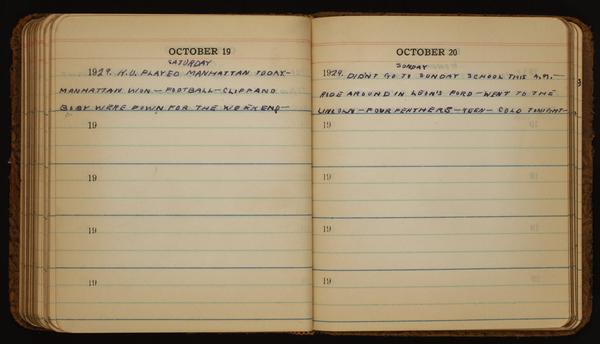 OCTOBER 19
SATURDAY
1929. K.U. PLAYED MANHATTAN TODAY—
MANHATTAN WON — FOOTBALL — CLIFF AND
WERE DOWN FOR THE WEEKEND —
19
19
19
19
OCTOBER 20
SUNDAY
1929. DIDN'T GO TO SUNDAY SCHOOL THIS A.M. —
RIDE AROUND IN LEON'S FORD — WENT TO THE
LINCOLN — FOUR FEATHERS — KEEN — COLD TONIGHT —
19
19
19
19